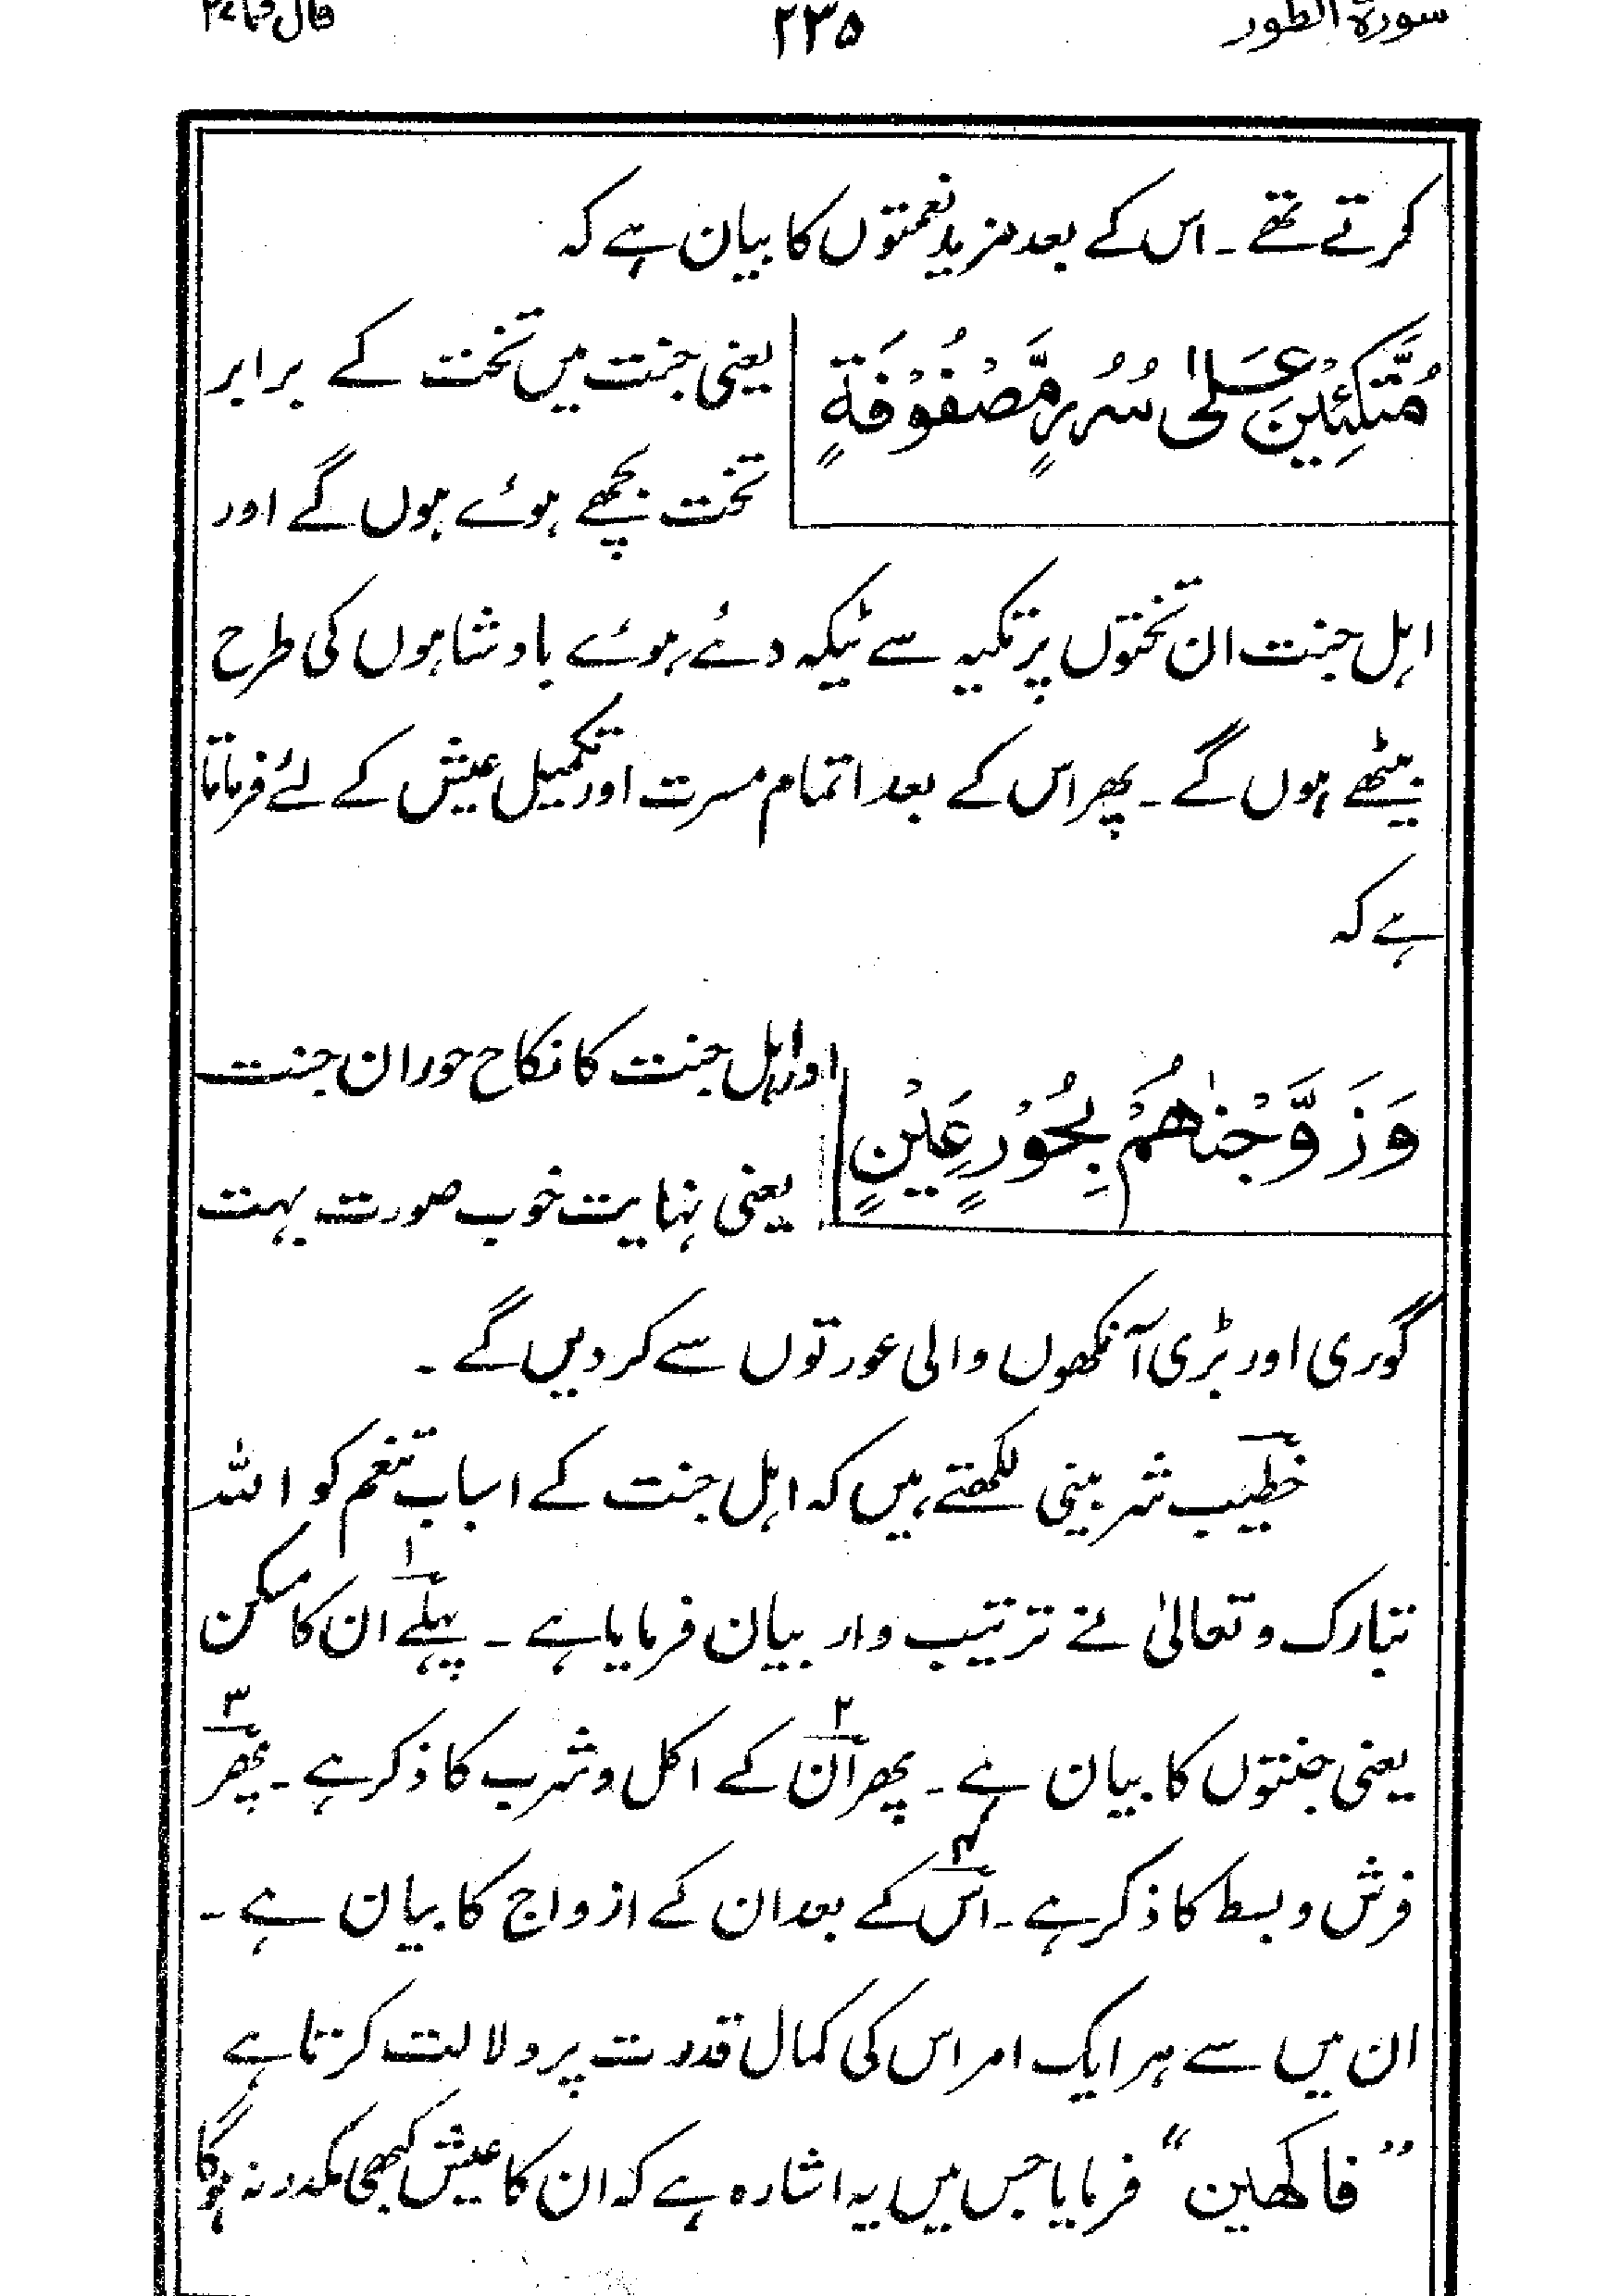 سورة الطور ۲۳۵ قال فما ۲۷
کرتے تھے ۔ اس کے بعد مزید نعمتوں کا بیان ہے کہ
مُتَّكِئِيْنَ عَلٰى سُرُرٍ مَّصْفُوْفَةٍ
یعنی جنت میں تخت کے برابر
تخت بچھے ہوئے ہوں گے اور
اہل جنت ان تختوں پر تکیہ سے ٹیکہ دئے ہوئے بادشاہوں کی طرح
بیٹھے ہوں گے ۔ پھر اس کے بعد اتمام مسرت اور تکمیل عیش کے لئے فرماتا
ہے کہ
وَزَوَّجْنٰهُمْ بِحُوْرٍ عِيْنٍ
اور اہل جنت کا نکاح حوران جنت
یعنی نہایت خوب صورت بہت
گوری اور بڑی آنکھوں والی عورتوں سے کر دیں گے ۔
خطیب شربینی لکھتے ہیں کہ اہل جنت کے اسباب تنعم کو اللہ
تبارک و تعالیٰ نے ترتیب وار بیان فرمایا ہے ۔ پہلے ۱ ان کا مسکن
یعنی جنتوں کا بیان ہے ۔ پھر ان ۲ کے اکل و شرب کا ذکر ہے ۔ پھر ۳
فرش و بسط کا ذکر ہے ۔ اس ۴ کے بعد ان کے ازواج کا بیان ہے ۔
ان میں سے ہر ایک امر اس کی کمال قدرت پر دلالت کرتا ہے
”فاکھین“ فرمایا جس میں یہ اشارہ ہے کہ ان کا عیش کبھی مکدر نہ ہوگا